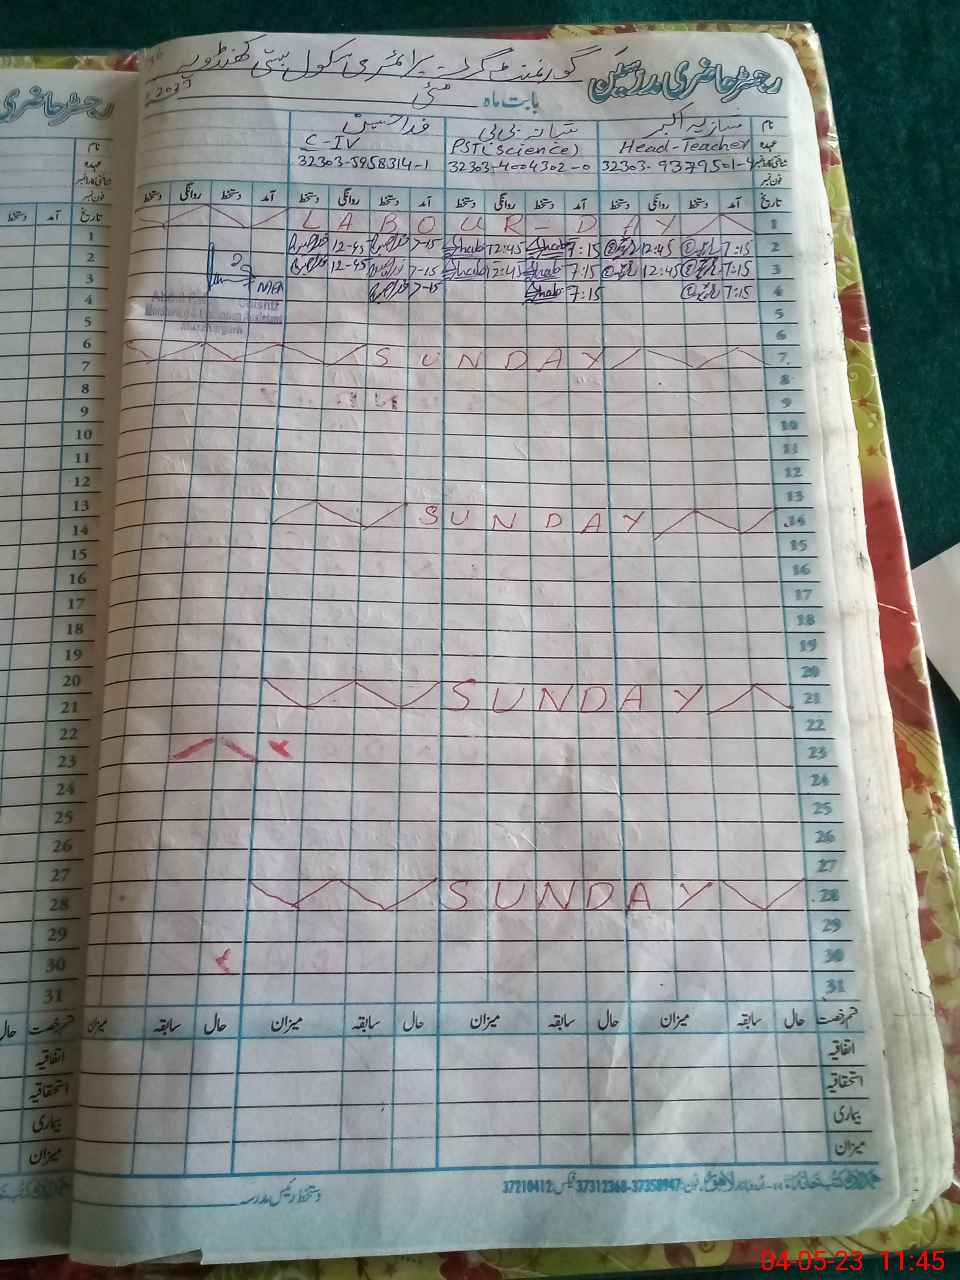 رجسٹر حاضری مدرسین گورنمنٹ گرلز پرائمری سکول بستی کھنڈویہ
بابت ماہ مئی 2023
نام شازیہ اکبر شبانہ بی بی فدا حسین
عہدہ Head-Teacher PST(Science) C-IV
شناختی کارڈ نمبر 32303-9379501-4 32303-4004302-0 32303-5958314-1
فون نمبر
تاریخ آمد دستخط روانگی دستخط آمد دستخط روانگی دستخط آمد دستخط روانگی دستخط آمد دستخط روانگی دستخط
1 LABOUR-DAY
2 7:15 12:45 7:15 Shab 12:45 Shab 7-15 12-45
3 7:15 12:45 7:15 Shab 12:45 Shab 7-15 12-45
4 7:15 7:15 Shab 7-15
MEA
5
6
7 SUNDAY
8
9
10
11
12
13
14 SUNDAY
15
16
17
18
19
20
21 SUNDAY
22
23
24
25
26
27
28 SUNDAY
29
30
31
قسم رخصت حال سابقہ میزان حال سابقہ میزان حال سابقہ میزان حال سابقہ میزان
اتفاقیہ
استحقاقیہ
بیماری
میزان
دستخط رئیس مدرسہ
فون: 37358947-37312368 فیکس: 37210412
رجسٹر حاضری
نام
عہدہ
شناختی کارڈ نمبر
فون نمبر
تاریخ آمد دستخط
1
2
3
4
5
6
7
8
9
10
11
12
13
14
15
16
17
18
19
20
21
22
23
24
25
26
27
28
29
30
31
قسم رخصت حال
اتفاقیہ
استحقاقیہ
بیماری
میزان
04-05-23 11:45